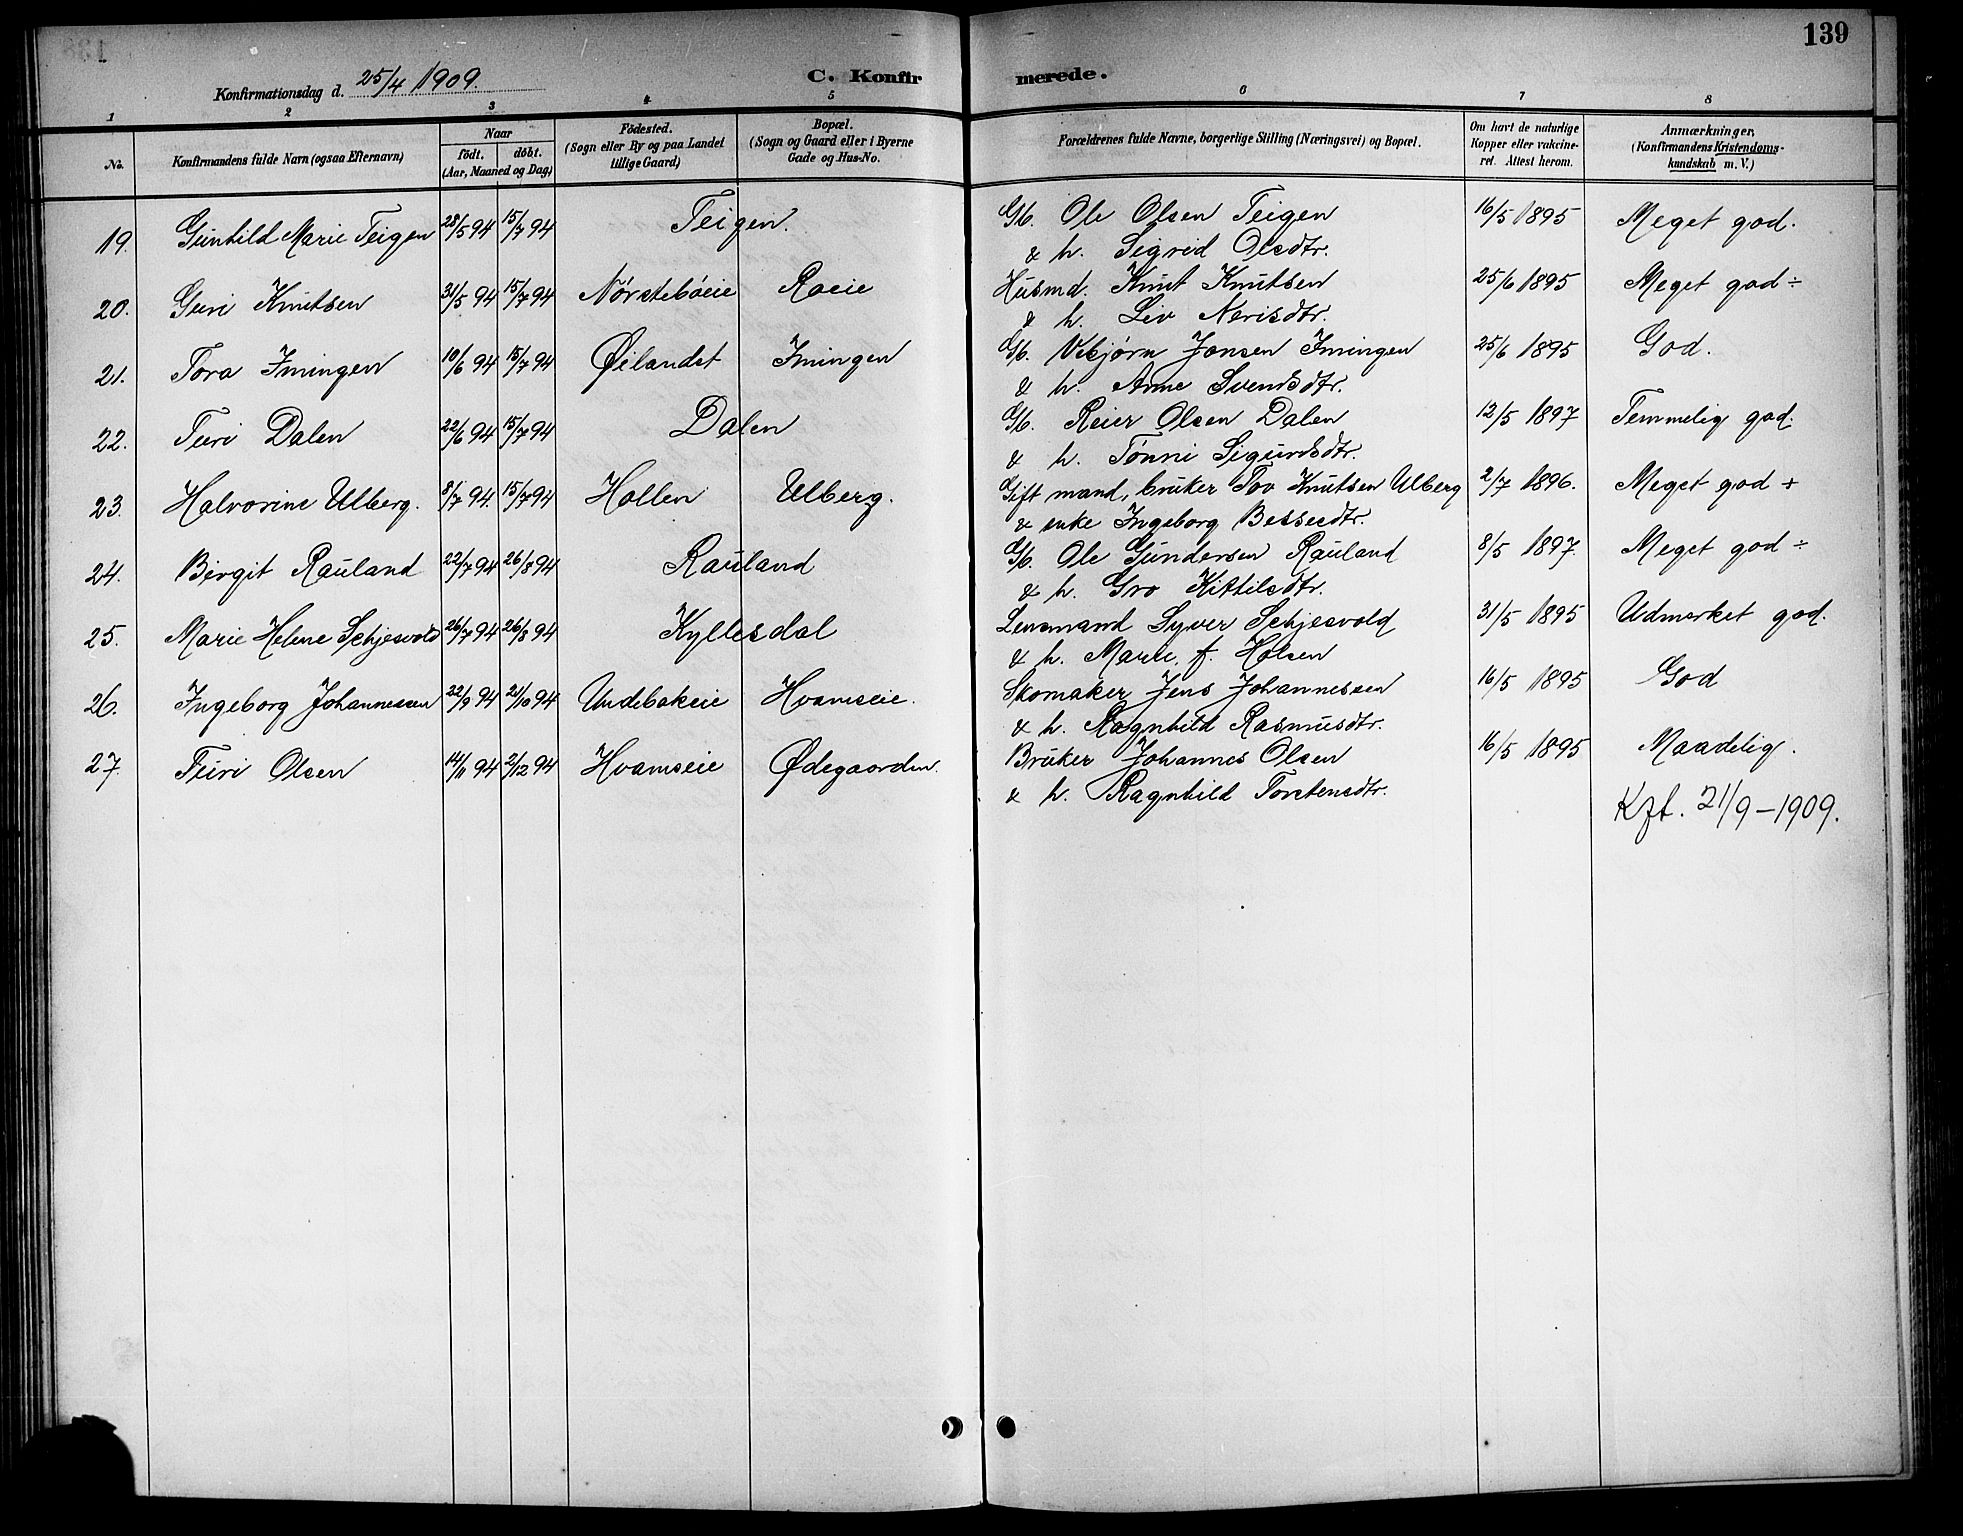 139
Konfirmationsdag d. 25/4 1909.
C. Konfirmerede.
1 2 3 4 5 6 7 8
No. Konfirmandens fulde Navn (ogsaa Efternavn) Naar födt. döbt. (Aar, Maaned og Dag) Födested. (Sogn eller By og paa Landet tillige Gaard) Bopæl. (Sogn og Gaard eller i Byerne Gade og Hus-No. Forældrenes fulde Navne, borgerlige Stilling (Næringsvei) og Bopæl. Om havt de naturlige Kopper eller vakcineret. Attest herom. Anmærkninger, (Konfirmandens Kristendomskundskab m. V.)
19. Gunhild Marie Teigen 28/5 94 15/7 94 Teigen. Gb. Ole Olsen Teigen 16/5 1895 Meget god.
& h. Sigrid Olsdtr.
20. Guri Knutsen 31/5 94 15/7 94 Nørstebøeie Roeie Husmd. Knut Knutsen 25/6 1895 Meget god ÷
& h. Liv Nerisdtr.
21. Tora Imingen 10/6 94 15/7 94 Øilandet Imingen Gb. Vebjørn Jonsen Imingen 25/6 1895 God.
& h. Anne Svendsdtr.
22. Turi Dalen 22/6 94 15/7 94 Dalen Gb. Reier Olsen Dalen 12/5 1897 Temmelig god.
& h. Tønni Sigurdsdtr.
23. Halvorine Ulberg. 8/7 94. 15/7 94 Hollen Ulberg. Gift mand, bruker Tov Knutsen Ulberg 2/7 1896. Meget god +
& enke Ingeborg Bessesdtr.
24. Birgit Rauland 22/7 94 26/8 94 Rauland Gb. Ole Gundersen Rauland 8/5 1897. Meget god ÷
& h. Gro Kittilsdtr.
25. Marie Helene Schjesvold 26/7 94 26/8 94 Kyllesdal Lensmand Syver Schjesvold 31/5 1895 Udmerket god.
& h. Marie, f. Holsen
26. Ingeborg Johannessen 22/9 94 21/10 94 Undebakeie Hvamseie. Skomaker Jens Johannessen 16/5 1895 God
& h. Ragnhild Rasmusdtr.
27. Turi Olsen 14/11 94 2/12 94 Hvamseie Ødegaarden. Bruker Johannes Olsen 16/5 1895 Maadelig.
& h. Ragnhild Torstensdtr.
Kzf. 21/9 – 1909.